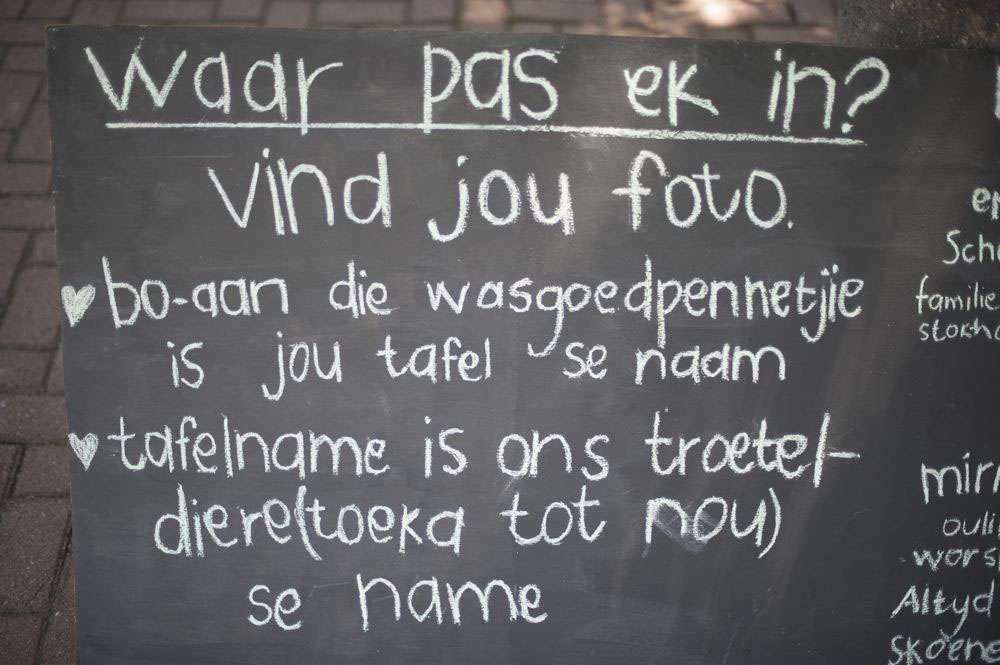 Waar pas ek in?
vind jou foto.
♥ bo-aan die wasgoedpennetjie
is jou tafel se naam
♥ tafelname is ons troetel-
diere (toeka tot nou)
se name
familie
Altyd